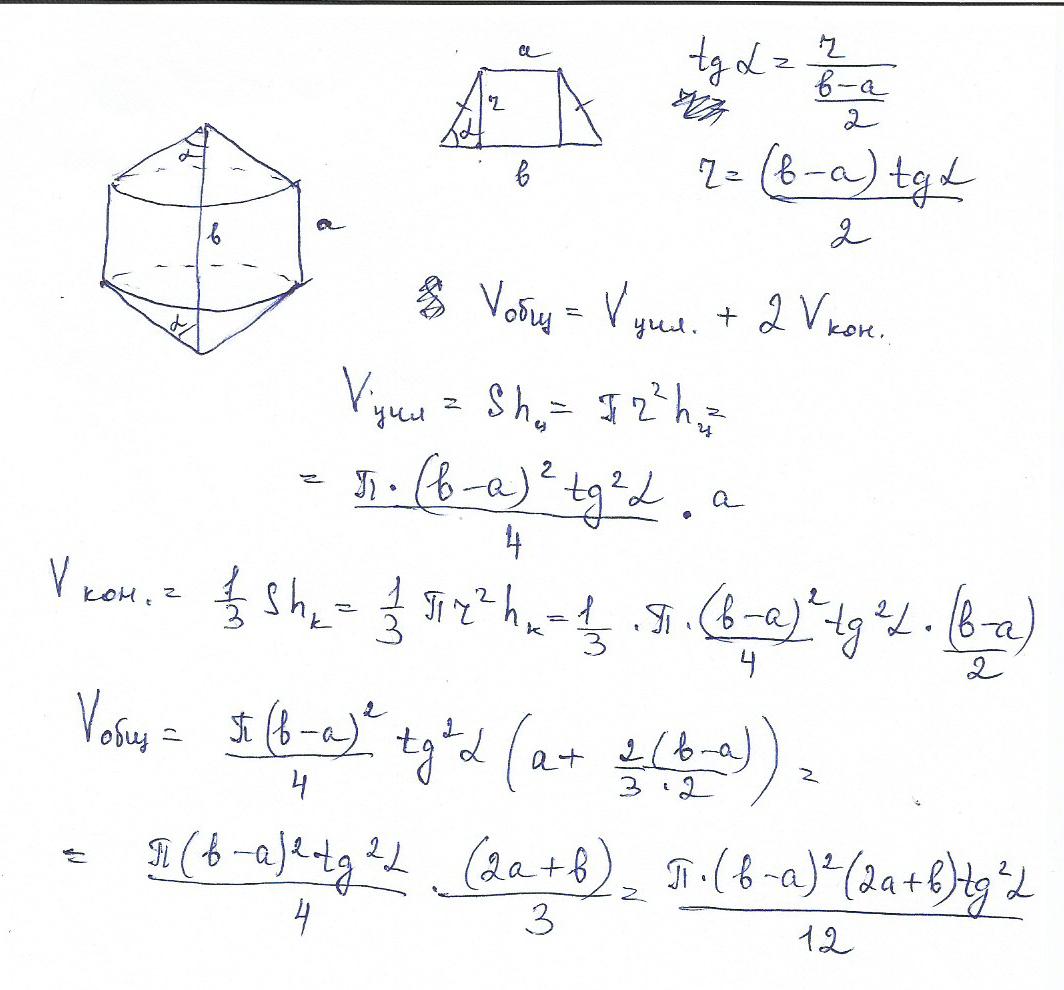 a
r
α
в
tg α = r / ((в-a)/2)
r = (в-a) tg α / 2
α
в
a
α
Vобщ = Vцил. + 2 Vкон.
Vцил = Shц = π r² hц =
= π·(в-a)² tg²α / 4 · a
Vкон. = 1/3 Shк = 1/3 π r² hк = 1/3 · π · (в-a)²/4 tg²α · (в-a)/2
Vобщ = π(в-a)²/4 tg²α (a + 2(в-a)/(3·2)) =
= π(в-a)² tg²α / 4 · (2a+в)/3 = π·(в-a)²(2a+в)tg²α / 12